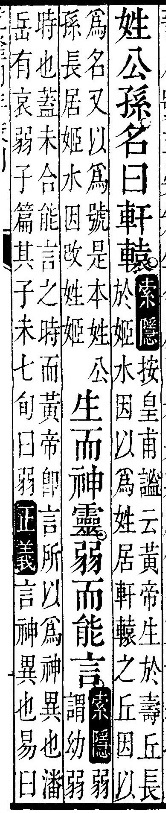 姓公孫名曰軒轅
索隱按皇甫謐云黃帝生於壽丘長
於姬水因以爲姓居軒轅之丘因以
爲名又以爲號是本姓公
孫長居姬水因改姓姬
生而神靈弱而能言
索隱弱
謂幼弱
時也蓋未合能言之時而黃帝即言所以爲神異也潘
岳有哀弱子篇其子未七旬曰弱正義言神異也易曰